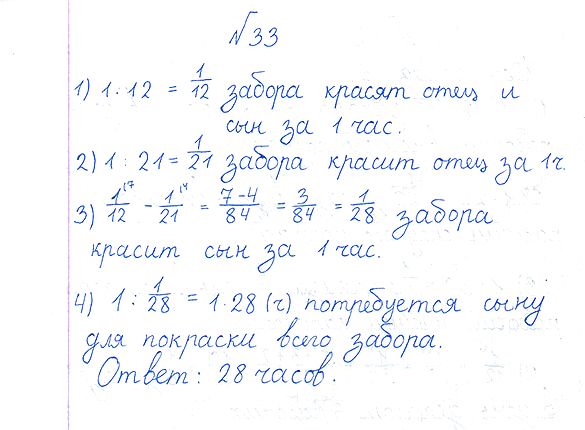 №33
1) 1 · 12 = 1/12 забора красят отец и
сын за 1 час.
2) 1 : 21 = 1/21 забора красит отец за 1ч.
3) 1/12 (7 - 1/21 (4 = 7-4/84 = 3/84 = 1/28 забора
красит сын за 1 час.
4) 1 : 1/28 = 1 · 28 (ч) потребуется сыну
для покраски всего забора.
Ответ: 28 часов.